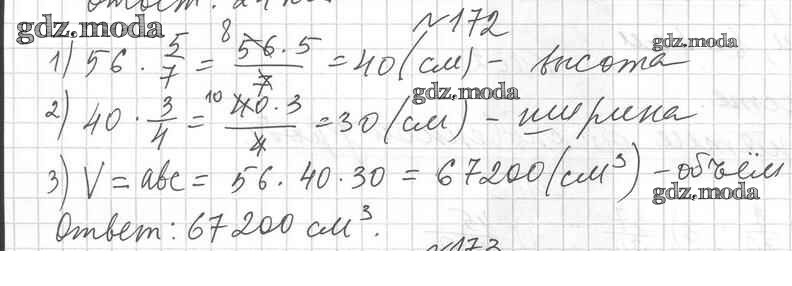 Ответ: 
gdz.moda
№172
gdz.moda
1) 56 · 5/7 = 56·5/7 = 40 (см) - высота
8
gdz.moda
2) 40 · 3/4 = 40·3/4 = 30 (см) - ширина
10
3) V = abc = 56 · 40 · 30 = 67200 (см³) - объём
gdz.moda
Ответ: 67200 см³.
№173